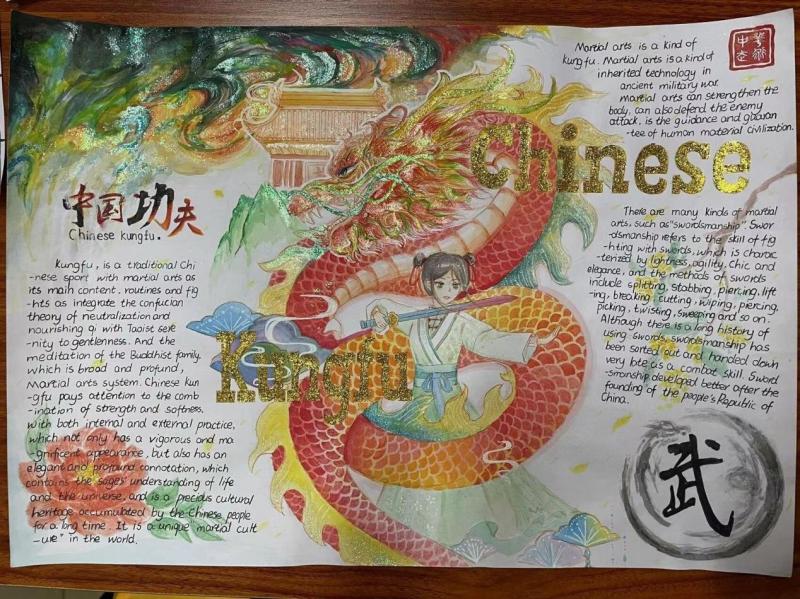 中国功夫
Chinese kungfu.
Kungfu, is a traditional Chi
-nese sport with martial arts as
its main content. routines and fig
-hts as integrate the confucian
theory of neutralization and
nourishing qi with Taoist sere
-nity to gentleness. And the
meditation of the Buddhist family.
which is broad and profound,
Martial arts system. Chinese kun
-gfu pays attention to the comb
-ination of strength and softness.
with both internal and external practice,
which not only has a vigorous and ma
-gnificent appearance, but also has an
elegant and profound connotation, which
contains the sages' understanding of life
and the universe, and is a precious cultural
heritage accumulated by the Chinese people
for a long time. It is a unique martial cult
-ure" in the world.
Chinese
Kungfu
Martial arts is a kind of
kungfu. Martial arts is a kind of
inherited technology in
ancient military war.
Martial arts can strengthen the
body, can also defend the enemy
attack, is the guidance and
-tee of human material civilization.
There are many kinds of martial
arts, such as "swordsmanship". Swor
-dsmanship refers to the skill of fig
-hting with swords, which is charac
-terized by lightness, agility. Chic and
elegance, and the methods of swords
include splitting, stabbing, piercing, lift
-ing, breaking, cutting, wiping, piercing,
picking, twisting, sweeping and so on.
Although there is a long history of
using swords, swordsmanship has
been sorted out and handed down
very late as a combat skill. Sword
-smanship developed better after the
founding of the people's Republic of
China.
武